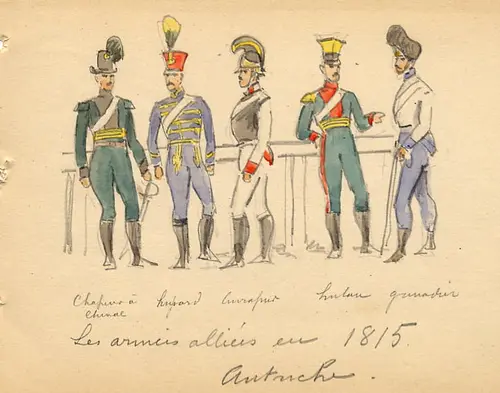 Chasseur à hussard Cuirassier hulan grenadier
cheval
Les armées alliées en 1815.
Autriche.